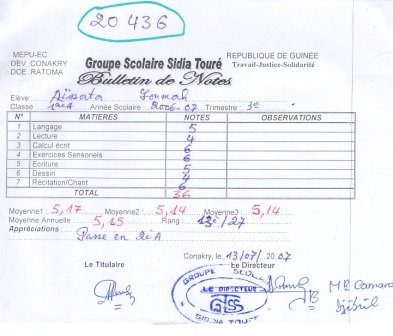 20436
MEPU-EC
DEV CONAKRY
DCE RATOMA
Groupe Scolaire Sidia Touré
REPUBLIQUE DE GUINEE
Travail-Justice-Solidarité
Bulletin de Notes
Elève Aïssata Soumah
Classe 1ère A Année Scolaire 2006-07 Trimestre 3e
N° MATIERES NOTES OBSERVATIONS
1 Langage 5
2 Lecture 4
3 Calcul écrit 6
4 Exercices Sensoriels 6
5 Ecriture 5
6 Dessin 4
7 Récitation/Chant 6
TOTAL 36
Moyenne1 5,17 Moyenne2 5,14 Moyenne3 5,14
Moyenne Annuelle 5,15 Rang 12è/27
Appréciations
Passe en 2è A
Conakry, le 13/07/ 2007
Le Titulaire Le Directeur
GROUPE SCOLAIRE
LE DIRECTEUR
GSST
SIDIA TOURE
Mr Camara
Djibril